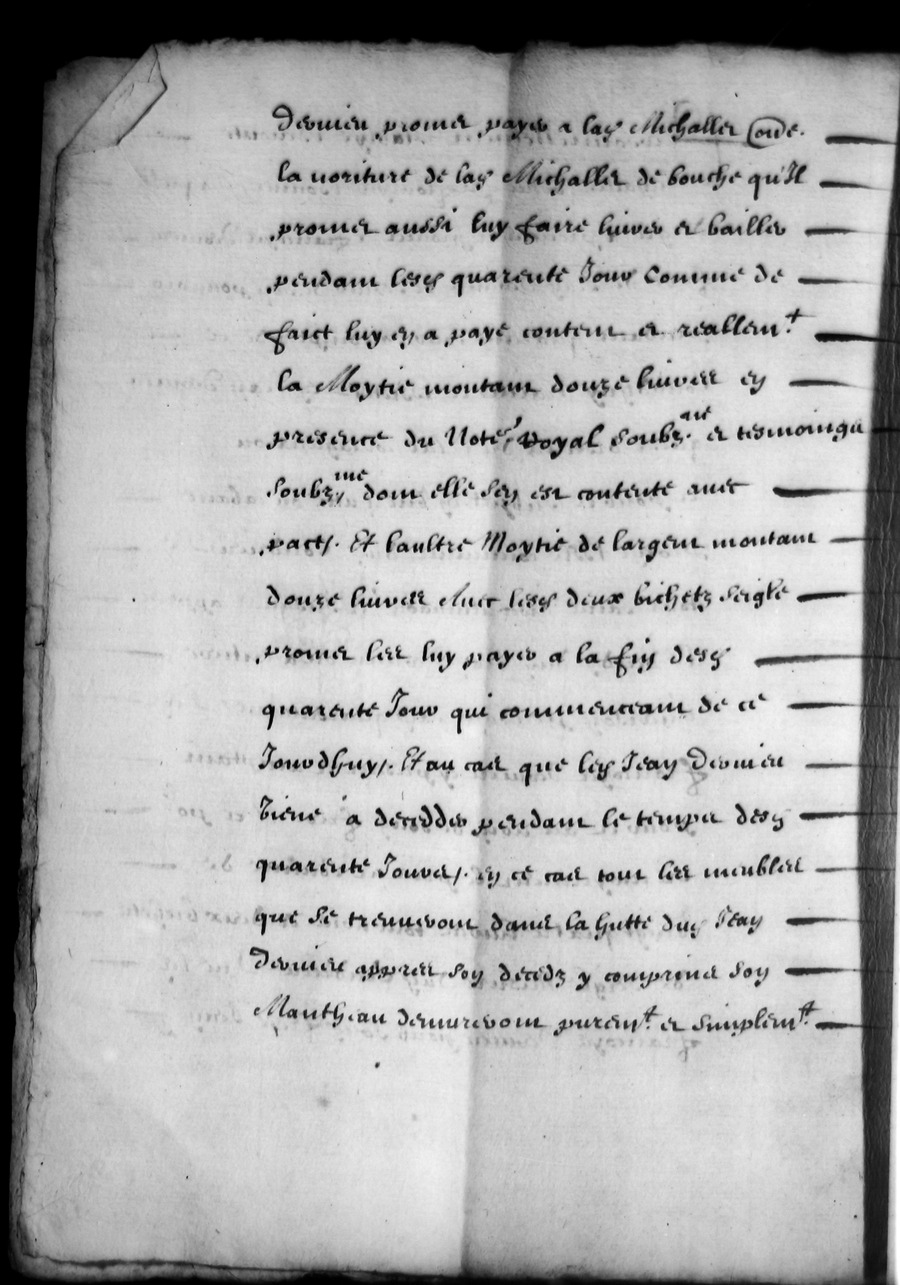 Dernier promet payer a lad Michallet
la noriture de lad Michallet de bouche qu'Il
promet aussi luy faire livrer et bailler
pendant lesd quarente Jour Comme de
faict luy en a payé content et reallemt
la Moytie montant douze livres en
presence du Notre Royal soubzné et tesmoings
soubznes dont elle sen est contente avec
pact. Et laultre Moytie de largent montant
douze livres Avec lesd deux bichetz seigle
promet les luy payer a la fin desd
quarente Jour qui commenceant de ce
Jourdhuy. Et au cas que led Jean Dernier
Viene a decedder pendant le temps desd
quarente Jours. en ce cas tout les meubles
que se treuveront dans la hutte dud Jean
Dernier appres son decedz y comprins son
Mantheau demureront puremt et simplemt